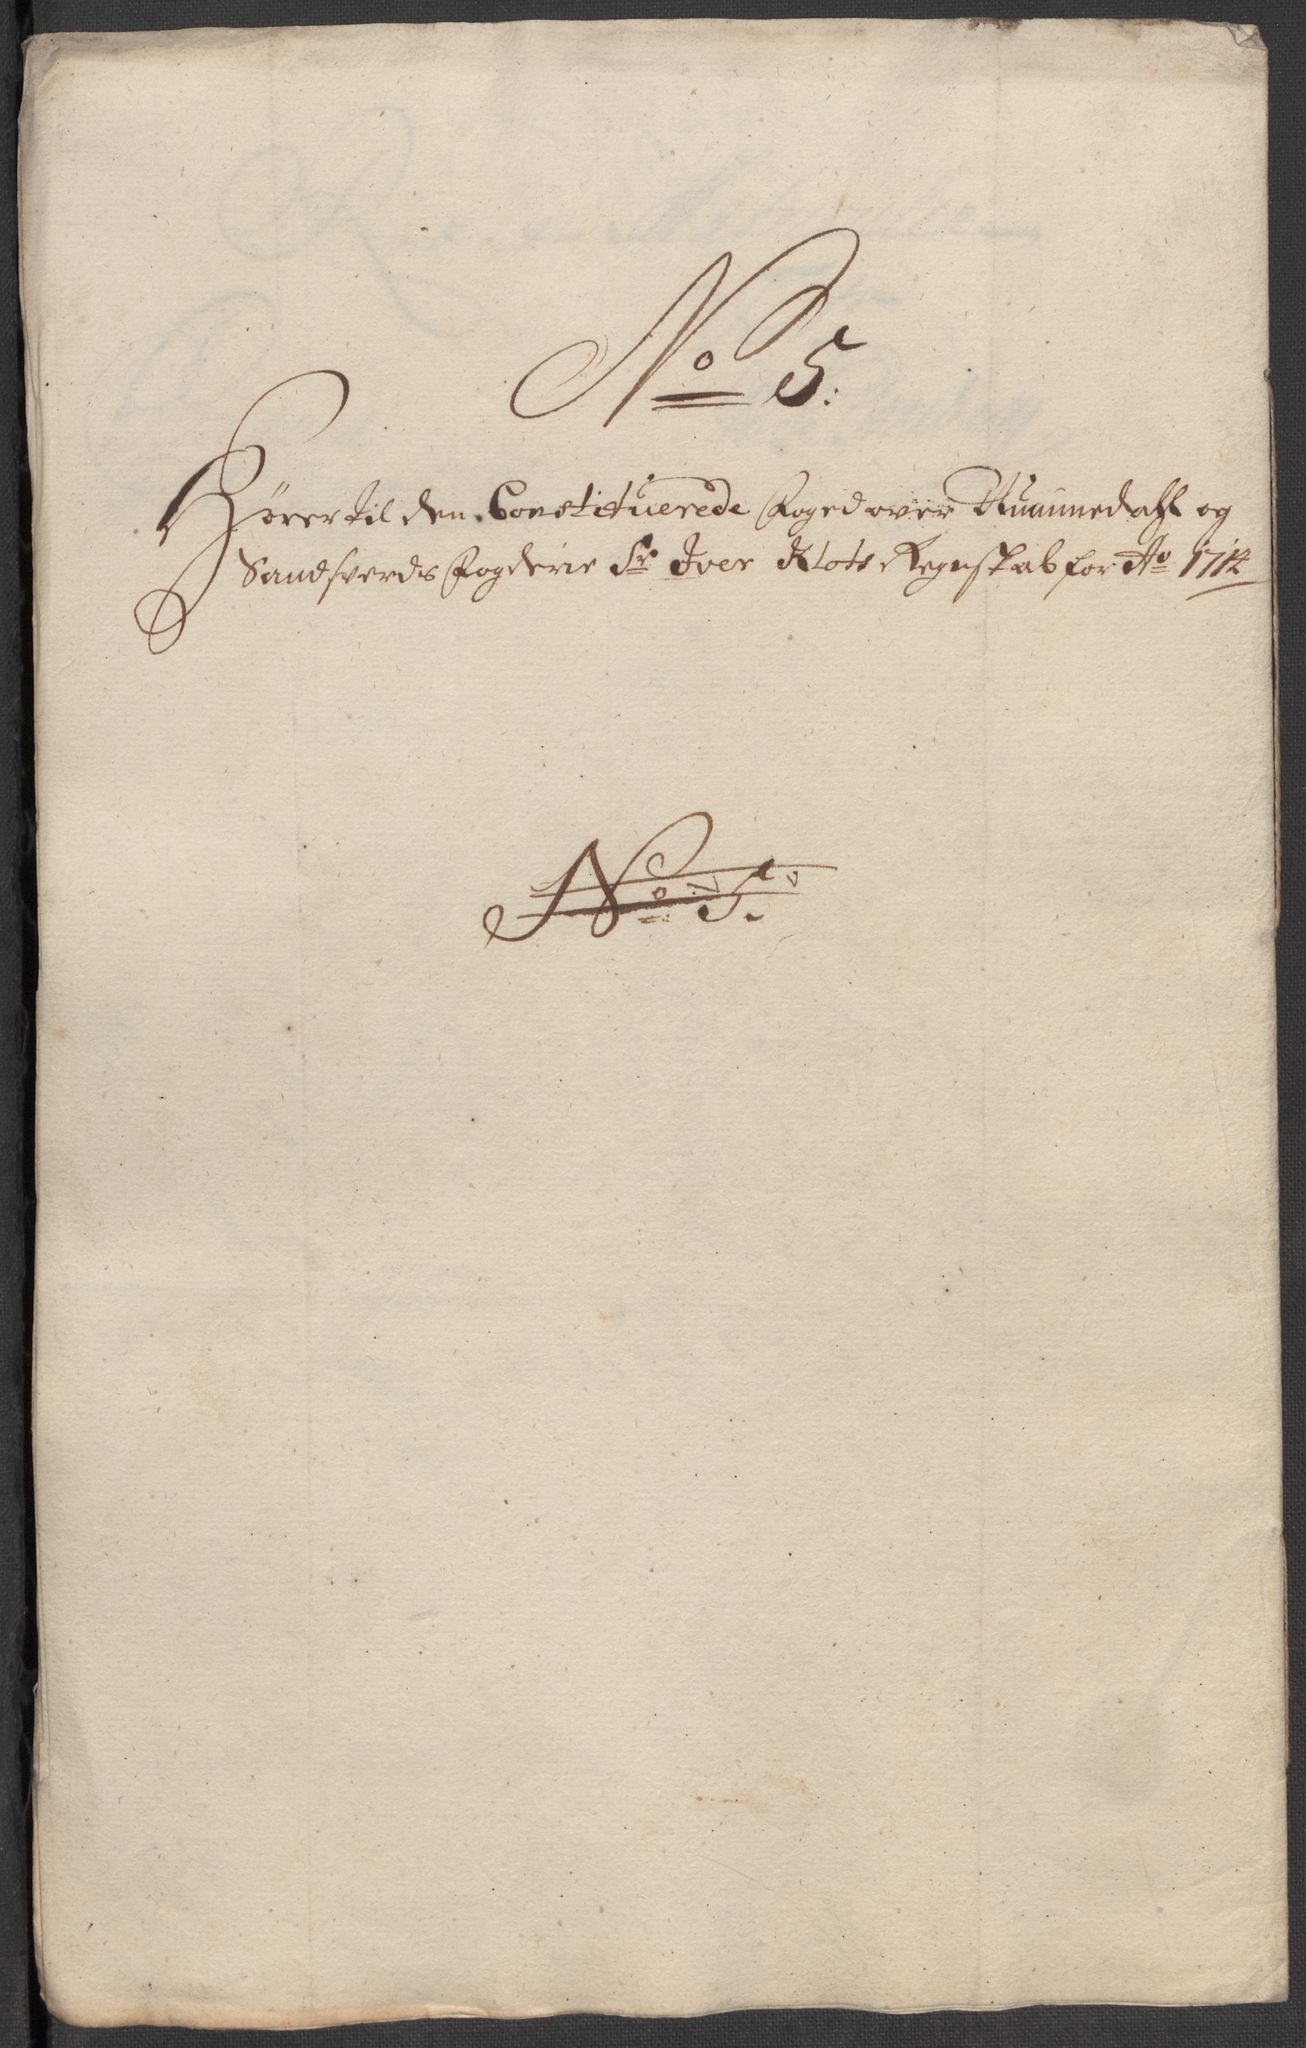 No 5:
Hører til den Constituerede Foged over Nummedahl og
Sandsverds Fogderie Sr Iver Klots Regnskab for Ao 1714
No 5.